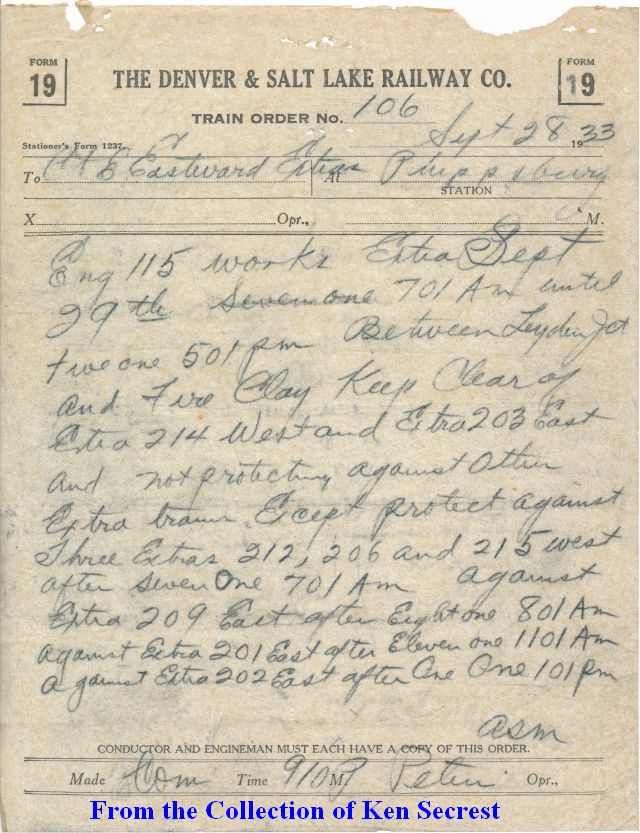 FORM 19
FORM 19
THE DENVER & SALT LAKE RAILWAY CO.
TRAIN ORDER No. 106
Sept 28 1933
Stationer's Form 1237.
To C & E Eastward Extras At Phippsburg
STATION
X Opr., M.
Eng 115 works Extra Sept
29th Seven one 701 Am until
Five one 501 pm Between Leyden Jct
and Fire Clay Keep Clear of
Extra 214 West and Extra 203 East
and not protecting against Other
Extra trains Except protect against
Three Extras 212, 206 and 215 west
after Seven One 701 Am against
Extra 209 East after Eight one 801 Am
against Extra 201 East after Eleven one 1101 Am
against Extra 202 East after One One 101 pm
asm
CONDUCTOR AND ENGINEMAN MUST EACH HAVE A COPY OF THIS ORDER.
Made Com Time 910 P M. Opr.,
From the Collection of Ken Secrest